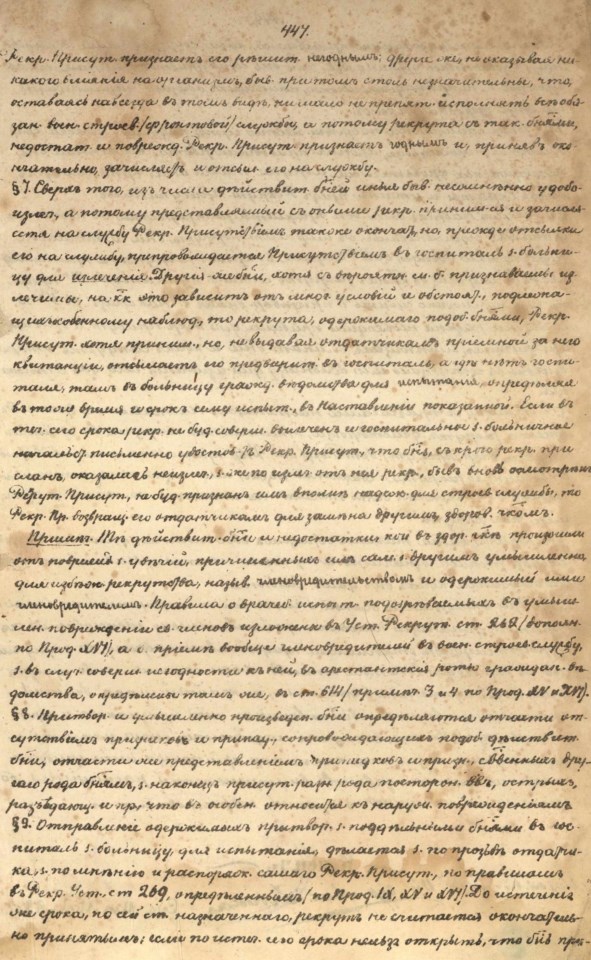 447.
Рекр. Присут. признаетъ его рѣшит. негоднымъ; другіе же, не оказывая ни-
какого вліянія на организмъ, бывъ при томъ столь незначительны, что,
оставаясь навсегда въ томъ видѣ, ни мало не препят. исполнять всѣ обя-
зан. воен. строев. /фронтовой/ службы, а потому рекрута съ так. бнями,
недостат. и поврежд. Рекр. Присут. признаетъ годнымъ и, принявъ око-
нчательно, зачисляетъ и отсыл. его на службу.
§ 7. Сверхъ того, изъ числа дѣйствит. бней иныя быв. несомнѣнно удобо-
излеч., а потому представляемый съ оными рекр. приним-ся и зачисля-
ется на службу Рекр. Присутствіемъ также окончат., но, прежде отсылки
его на службу, препровождается Присутствіемъ въ госпиталь s. больни-
цу для излеченія. Другія же бни, хотя съ вѣроятн. м. б. признаваемы из-
лечимы, но, кк это зависитъ отъ мног. условій и обстоят., подлежа-
щихъ особенному наблюд., то рекрута, одержимаго подоб. бнями, Рекр.
Присут. хотя приним., но, не выдавая отдатчикамъ пріемной за него
квитанціи, отсылаетъ его предварит. въ госпиталь, а гдѣ нѣтъ госпи-
таля, тамъ въ больницу гражд. вѣдомства для испытанія, опредѣляя
въ тоже время и срокъ сему испыт., въ Наставленіи показанной. Если въ
теч. сего срока рекр. не буд. соверш. вылеченъ и госпитальное s. больничное
началь. письменно удостов-тъ Рекр. Присут., что бнь, съ крою рекр. при-
сланъ, оказалась неизлеч., s. же по излеч. отъ нея рекр., бывъ вновь осмотрѣнъ
Рекрут. Присут., не буд. признанъ имъ вполнѣ надеж. для строев. службы, то
Рекр. Пр. возвращ. его отдатчикамъ для замѣна другимъ, здоров. члкомъ.
Примѣч. Тѣ дѣйствит. бни и недостатки, кои въ здор. произошли
отъ поврежд. s. увѣчій, причиненныхъ имъ сам. s. другимъ умышленно
для избѣж. рекрутства, назыв. членовредительствомъ и одержимый ими
членовредителемъ. Правила о врачеб. испыт. подозрѣваемыхъ въ умыш-
лен. поврежденіи св. членовъ изложены въ Уст. Рекрут. ст. 262 /дополн.
по Прод. XVI/, а о пріемѣ вообще членовредителей въ воен. строев. службу,
s. въ случ. соверш. негодности къ ней, въ арестантскія роты граждан. вѣ-
домства, опредѣлены тамъ же, въ ст. 614 /примѣч. 3 и 4 по Прод. XV и XVI/.
§ 8. Притвор. и умышленно произведен. бни опредѣляются отчасти от-
сутствіемъ признаковъ и припад., сопровождающихъ подоб. дѣйствит.
бни, отчасти же представленіемъ припадковъ и призн., свойственныхъ дру-
гаго рода бнямъ, s. наконецъ присут. разн. рода посторон. вещ., острыхъ,
разъѣдающ. и пр., что въ особен. относится къ наружн. поврежденіямъ.
§ 9. Отправленіе одержимыхъ притвор. s. поддѣльными бнями въ гос-
питаль s. больницу, для испытанія, дѣлается s. по прозьбѣ отдатчи-
ка, s. по мнѣнію и распоряж. самаго Рекр. Присут., по правиламъ
въ Рекр. Уст. ст. 269, опредѣленнымъ /по Прод. IX, XV и XVI/. До истеченія
же срока, по сей ст. назначеннаго, рекрутъ не считается окончатель-
но принятымъ; если по истеч. его срока нельзя открыть, что бнь при-